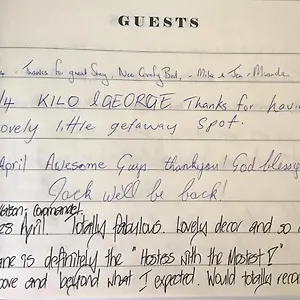 GUESTS
4 - Thanks for great Stay, Nice Comfy Bed, - Mike & Jen -
/4 KILO & GEORGE Thanks for havi
ovely little getaway spot.
April Awesome Guys thankyou! God bless
Jack we'll be back!
28 April. Totally fabulous. Lovely decor and so
ne is definitely the "Hostess with the Mostest!"
bove and beyond what I expected. Would totally reco